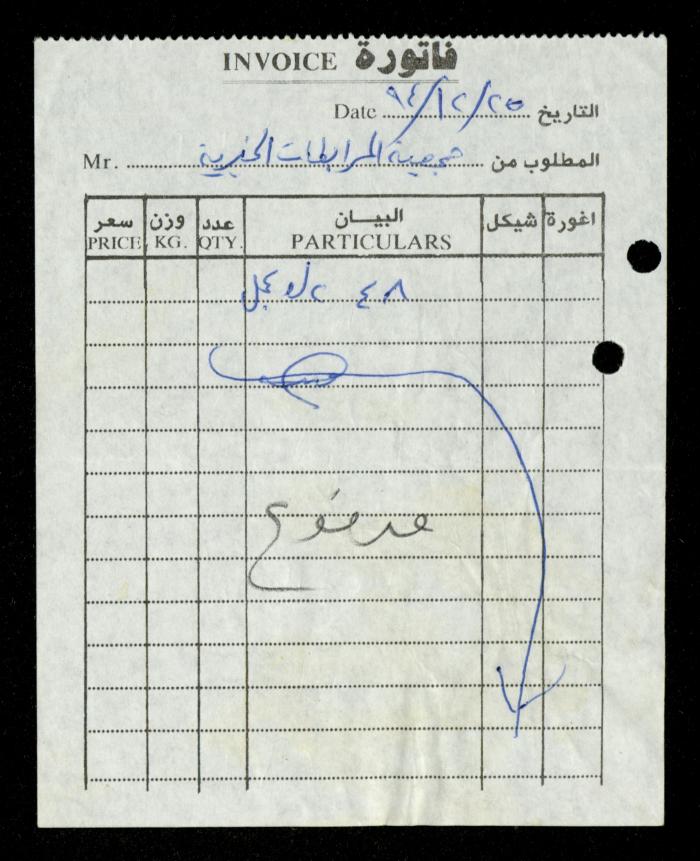 INVOICE فاتورة
Date ٩٤/١٢/٢٥ التاريخ
Mr. جمعية المرابطات الخيرية المطلوب من
اغورة شيكل البيان عدد وزن سعر
PRICE KG. QTY. PARTICULARS
٤٨
مدفوع